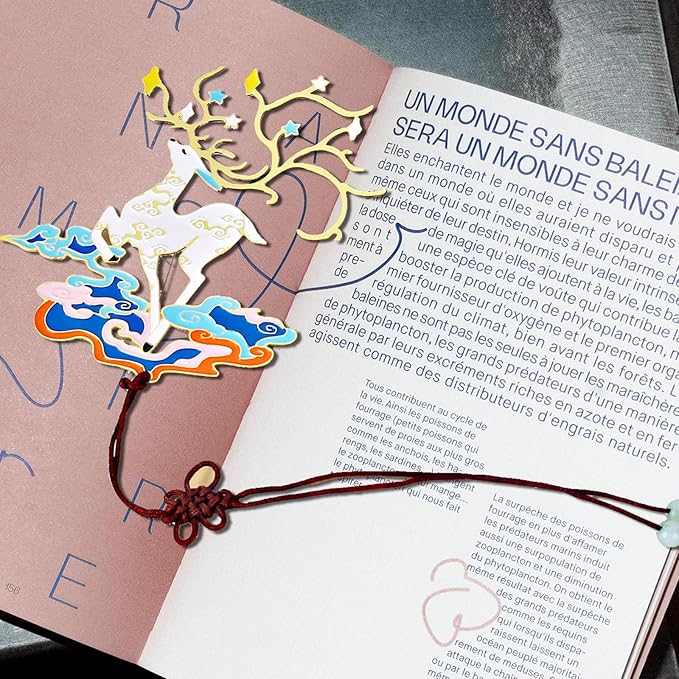 R
N A
M
R
E
156
UN MONDE SANS BALEI
SERA UN MONDE SANS
Elles enchantent le monde et je ne voudrais
dans un monde où elles auraient disparu et
même ceux qui sont insensibles à leur charme d
inquiéter de leur destin. Hormis leur valeur intrins
la dose de magie qu'elles ajoutent à la vie, les ba
sont une espèce clé de voûte qui contribue
ment à booster la production de phytoplancton,
pre- mier fournisseur d'oxygène et le premier organ
de régulation du climat, bien avant les forêts.
baleines ne sont pas les seules à jouer les maraîchère
de phytoplancton, les grands prédateurs d'une manière
générale par leurs excréments riches en azote et en fer
agissent comme des distributeurs d'engrais naturels.
Tous contribuent au cycle de
la vie. Ainsi les poissons de
fourrage (petits poissons qui
servent de proies aux plus gros
comme les anchois, les ha-
rengs, les sardines,
le zooplancton qui mange
le
qui nous fait
La surpêche des poissons de
fourrage en plus d'affamer
les prédateurs marins induit
aussi une surpopulation de
zooplancton et une diminution
du phytoplancton. On obtient le
même résultat avec la surpêche
des grands prédateurs
comme les requins
qui lorsqu'ils dispa-
raissent laissent un
océan peuplé majoritai-
rement de méduses,
ou par le
attaque la